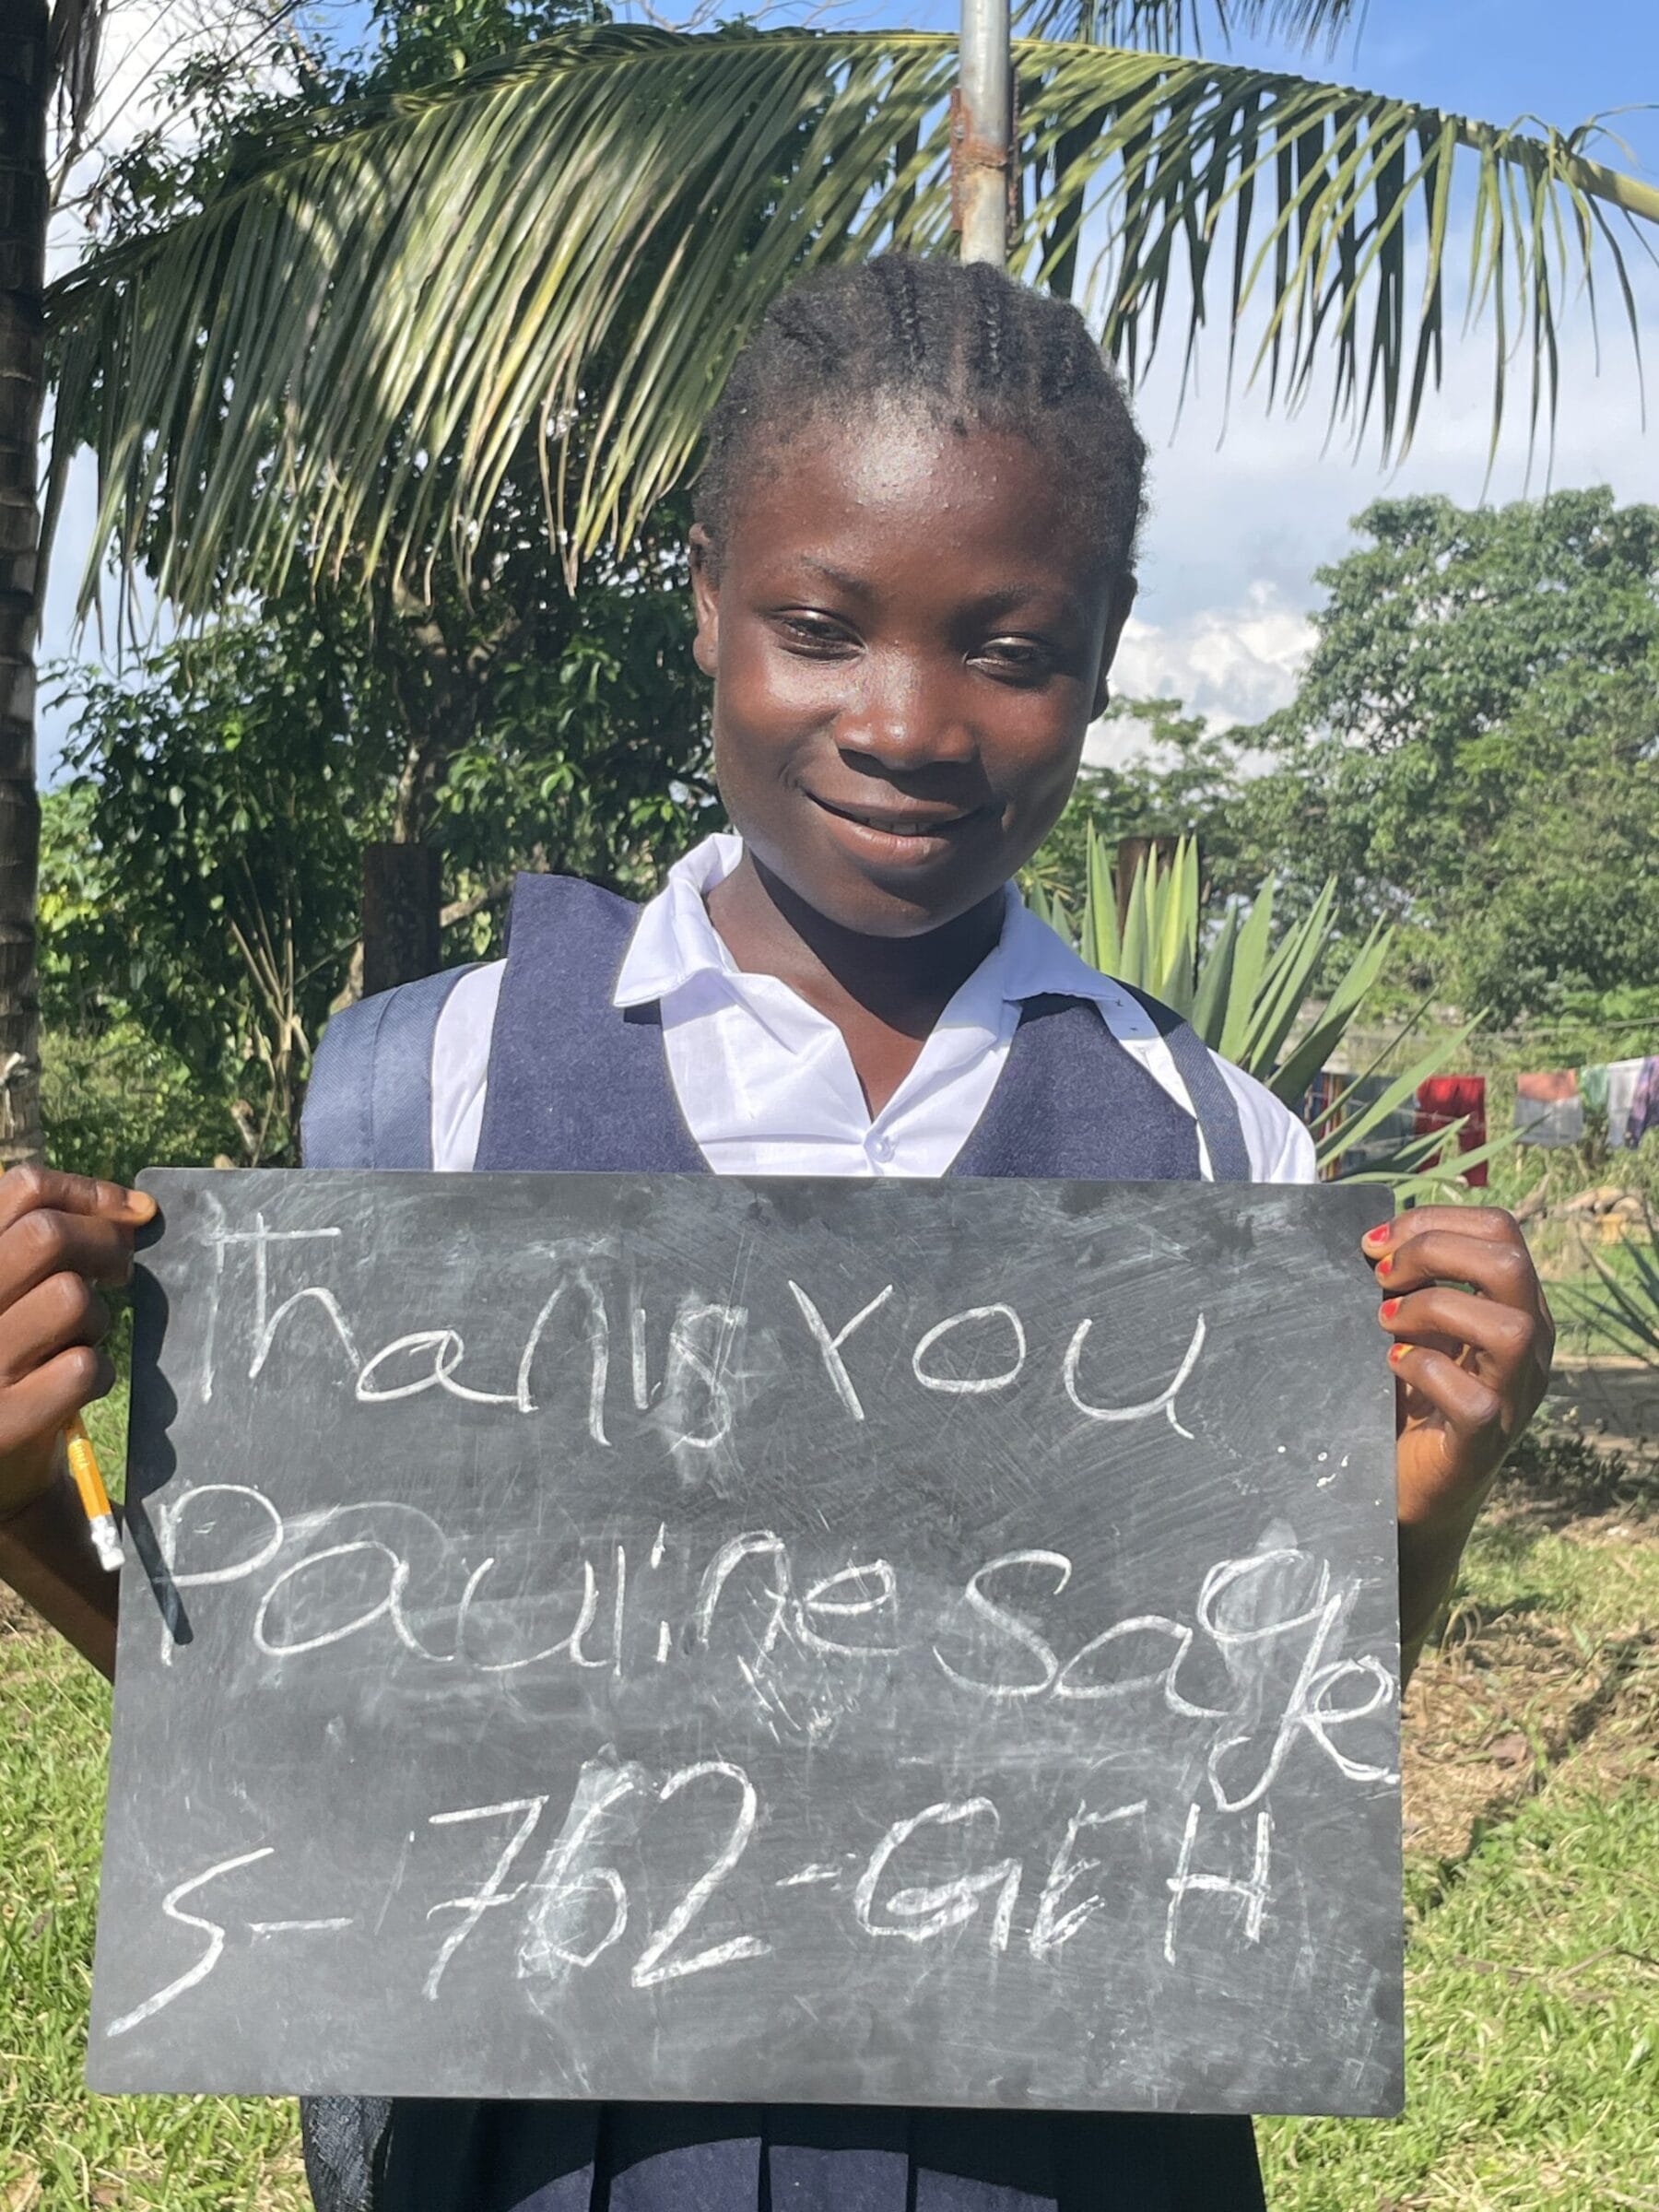 Thank You
Pauline Sagk
S-762-GEH